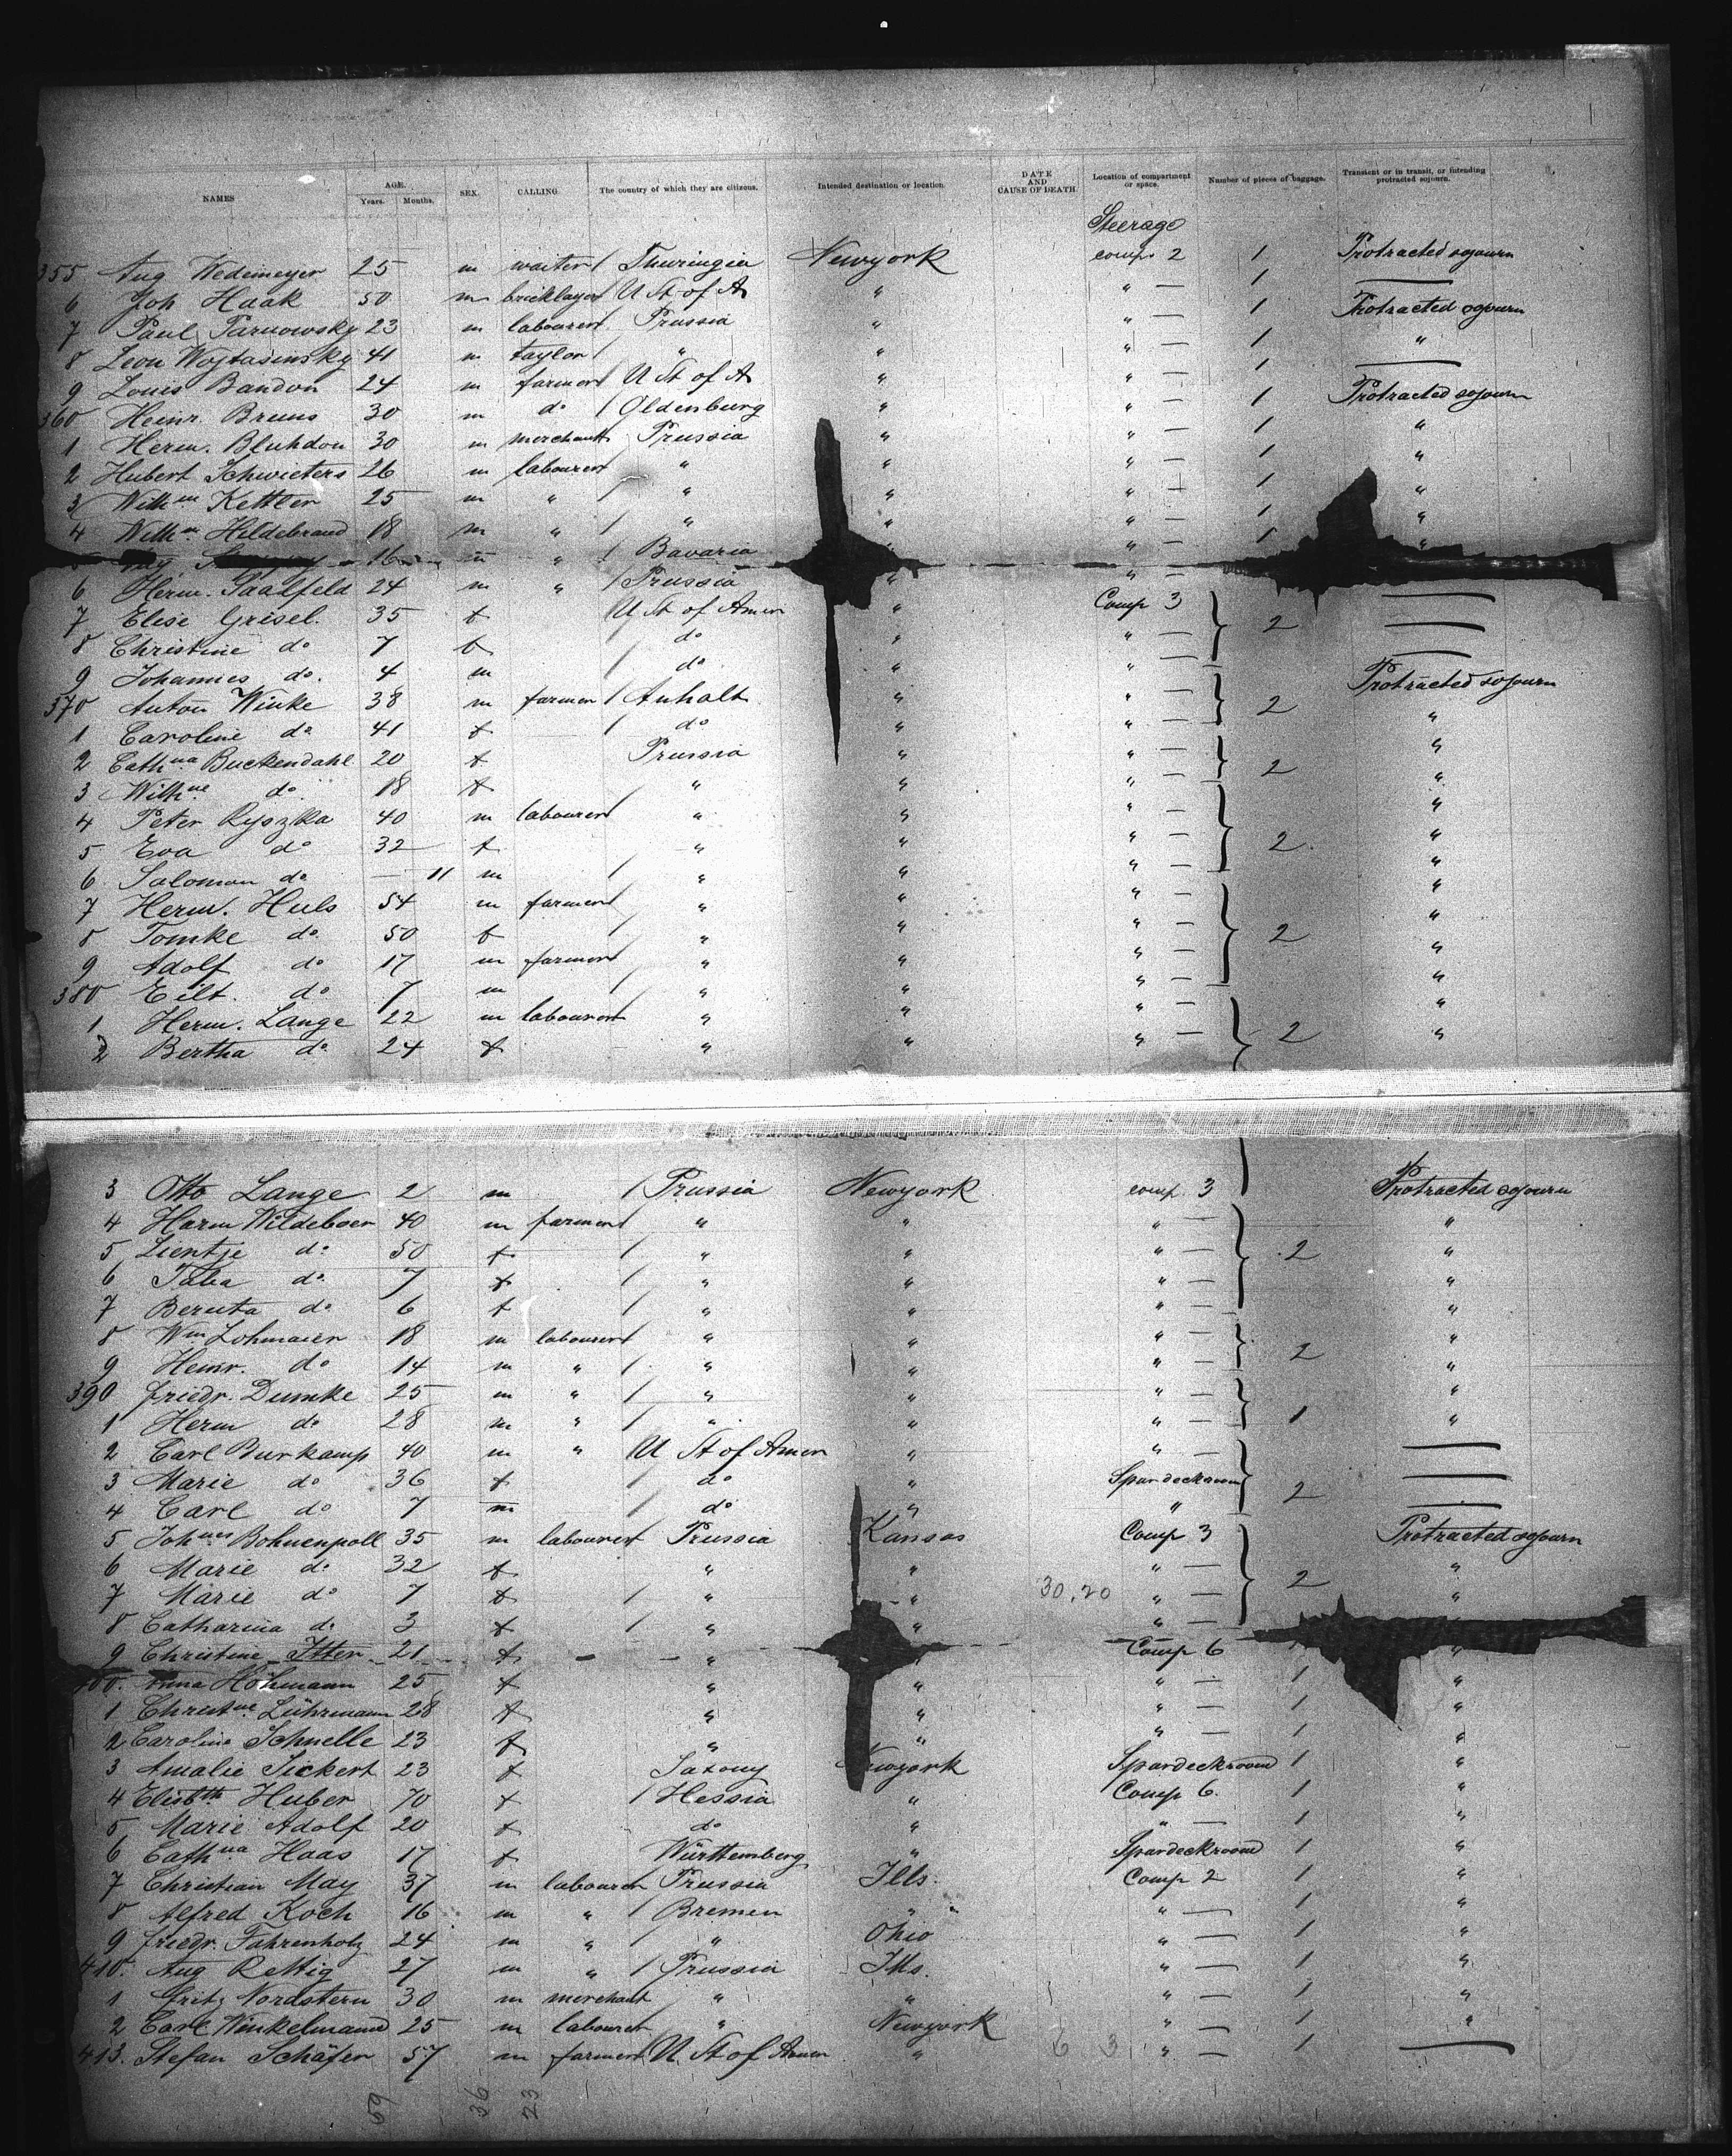 NAMES AGE. Years. Months. SEX. CALLING. The country of which they are citizens. Intended destination or location. DATE AND CAUSE OF DEATH. Location of compartment or space. Number of pieces of baggage. Transient or in transit, or intending protracted sojourn.
Steerage
355 Aug Wedemeyer 25 m waiter / Thuringia Newyork comp 2 1 Protracted sojourn
6 Joh Haak 50 m bricklayer / U St of A " " — 1 —
7 Paul Parnowsky 23 m labourer / Prussia " " — 1 Protracted sojourn
8 Leon Wojtasinsky 41 m taylor / " " " — 1 "
9 Louis Bandon 24 m farmer / U St of A " " — 1 —
360 Heinr. Bruns 30 m do / Oldenburg " " — 1 Protracted sojourn
1 Herm. Bluhdon 30 m merchant Prussia " " — 1 "
2 Hubert Schwieters 26 m labourer " " " — 1 "
3 Wilhm Kettler 25 m " / " " " — 1 "
4 Wilhm Hildebrand 18 m " / " " " — 1 "
Aug 16 m " / Bavaria " " —
6 Herm. Saalfeld 24 m " / Prussia " " —
7 Elise Grisel. 35 f U St of Amer " Comp 3 2 —
8 Christine do 7 f / do " " — —
9 Johannes do. 4 m / do " " — —
370 Anton Winke 38 m farmer / Anhalt " " — 2 Protracted sojourn
1 Caroline do 41 f / do " " — "
2 Cathna Buckendahl 20 f Prussia " " — 2 "
3 Wilhne do 18 f " " " — "
4 Peter Ryszka 40 m labourer " " " — "
5 Eva do 32 f " " " — 2. "
6 Saloman do — 11 m / " " " — "
7 Herm. Huls 54 m farmer " " " — "
8 Tomke do 50 f / " " " — 2 "
9 Adolf do 17 m farmer " " " — "
380 Eilt. do 7 m / " " " — "
1 Herm. Lange 22 m labourer " " " "
2 Bertha do 24 f " " " — 2 "
3 Otto Lange 2 m / Prussia Newyork comp 3 Protracted sojourn
4 Harm Wildeboer 40 m farmer / " " " — "
5 Lientje do 50 f / " " " — 2 "
6 Taba do 7 f / " " " — "
7 Beruta do 6 f / " " " — "
8 Wm Lohmaier 18 m labourer / " " " — "
9 Heinr. do 14 m " / " " " — 2 "
390 Friedr. Dumke 25 m " / " " " — "
1 Herm do 28 m " / " " " — 1 "
2 Carl Burkamp 40 m " U St of Amer " " — —
3 Marie do 36 f / do " Spardeckroom 2 —
4 Carl do 7 m / do " " —
5 Johnes Bohnenpoll 35 m labourer Prussia Kansas Comp 3 Protracted sojourn
6 Marie do 32 f " " " — 2 "
7 Marie do 7 f / " " 30,20 " — "
8 Catharina do 3 f / " " " —
9 Christine Itter 21 f " Comp 6 "
400. Anna Hohmann 25 f " " " — 1 "
1 Christne Lührmann 28 f " " " — 1 "
2 Caroline Schnelle 23 f " " " — 1 "
3 Amalie Sickert 23 f Saxony Newyork Spardeckroom 1 "
4 Elisbth Huber 70 f / Hessia " Comp 6. 1 "
5 Marie Adolf 20 f do " " — 1 "
6 Cathna Haas 17 f Württemberg " Spardeckroom 1 "
7 Christian May 37 m labourer Prussia Ills. Comp 2 1 "
8 Alfred Koch 16 m " / Bremen " " — 1 "
9 Friedr. Fahrenholz 24 m " / " Ohio " — 1 "
410. Aug Rettig 27 m " / Prussia Ills. " — 1 "
1 Fritz Nordstern 30 m merchant " " " — 1 "
2 Carl Winkelmann 25 m labourer " Newyork " — 1 "
413. Stefan Schäfer 57 m farmer U. St of Amer " 6 3 " — 1 —
59 36 23